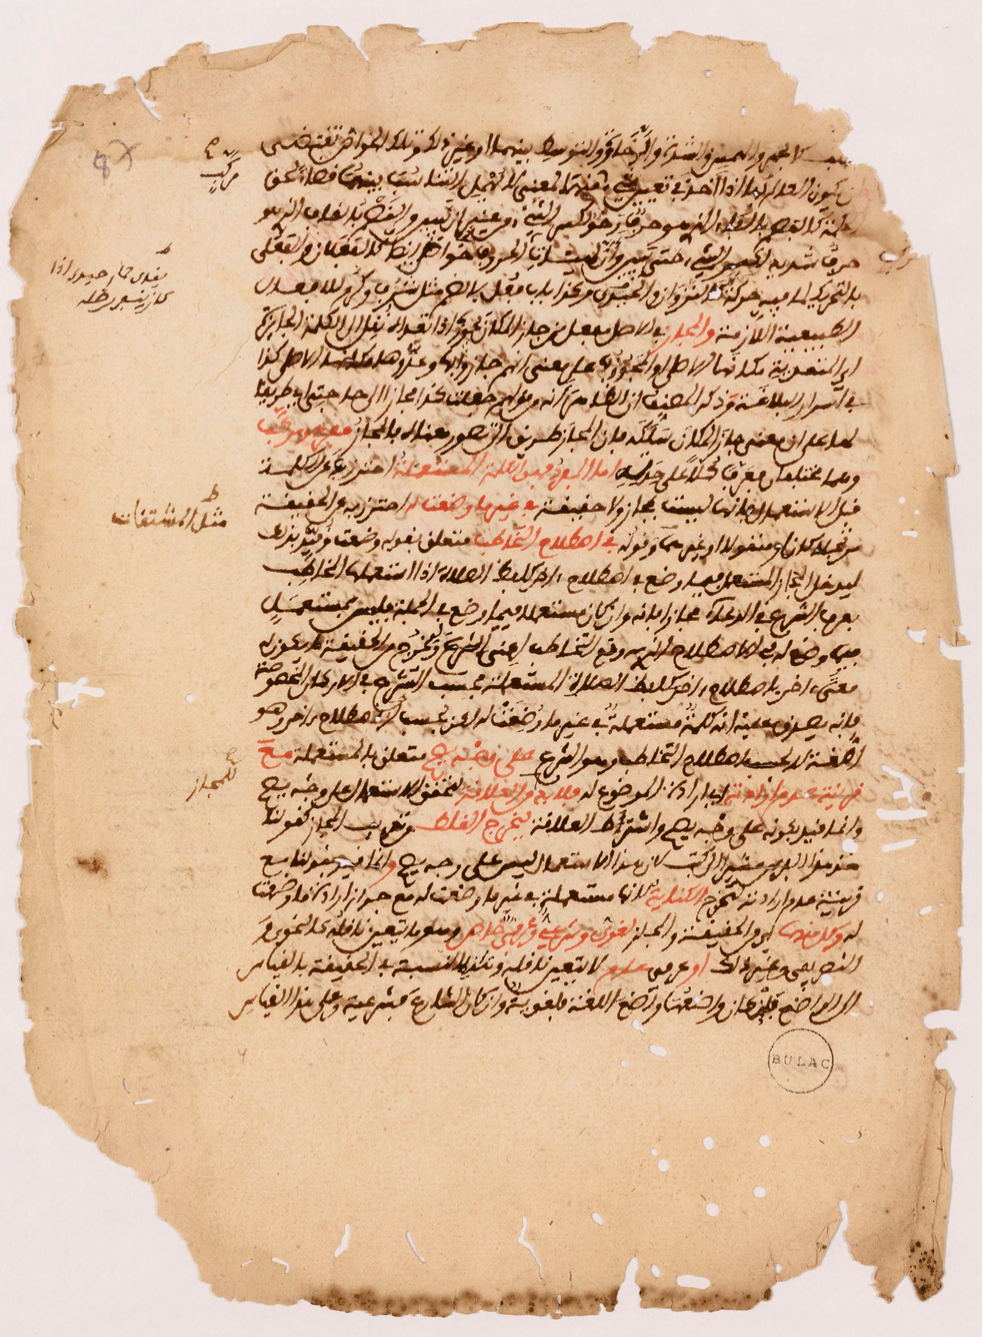 كالجهر والهمس والشدة والرخاوة والتوسط بينهما وغير ذلك وتلك الخواص تقتضي
ان يكون العالم بها اذا اخذ في تعيين شيء منها لمعنى لا يهمل التناسب بينهما قضاء لحق
الحكمة كالفصم بالفاء الذي هو حرف رخو لكسر الشيء من غير ان يبين والقصم بالقاف الذي هو
حرف شديد لكسر الشيء حتى يبين وان لهيئات الحروف خواص ايضا كالفعلان والفعلى
بالتحريك لما فيه حركة كالنزوان والحيدى وكذا باب فعل بالضم مثل شرف وكرم للافعال
الطبيعية اللازمة والمجاز في الاصل مفعل من جاز المكان يجوزه اذا تعداه نقل الى الكلمة الجايزة
اي المتعدية مكانها الاصلي او المجوز بها على معنى انهم جازوا بها وعدوها مكانها الاصلي كذا
في اسرار البلاغة وذكر المصنف ان الظاهر انه من قولهم جعلت كذا مجازا الى حاجتي اي طريقا
لها على ان معنى جاز المكان سلكه فان المجاز طريق الى تصور معناه فالمجاز مفرد ومركب
وهما مختلفان فعرفا كلا على حدته اما المفرد فهو الكلمة المستعملة احترز به عن الكلمة
قبل الاستعمال فانها ليست بمجاز ولا حقيقة في غير ما وضعت له احترز به عن الحقيقة
مرتجلا كان او منقولا او غيرهما وقوله في اصطلاح التخاطب متعلق بقوله وضعت وقيد بذلك
ليدخل المجاز المستعمل فيما وضع له في اصطلاح اخر كلفظ الصلاة اذا استعملها المخاطب
بعرف الشرع في الدعاء مجازا فانه وان كان مستعملا فيما وضع له في الجملة فليس بمستعمل
فيما وضع له في الاصطلاح الذي به وقع التخاطب اعني الشرع وليخرج من الحقيقة ما يكون له
معنى اخر باصطلاح اخر كلفظ الصلاة المستعملة بحسب الشرع في الاركان المخصوصة
فانه يصدق عليه انه كلمة مستعملة في غير ما وضعت له لكن بحسب اصطلاح اخر وهو
اللغة لا بحسب اصطلاح التخاطب وهو الشرع على وجه يصح متعلق بالمستعملة مع
قرينة عدم ارادته اي ارادة الموضوع له فلا بد من العلاقة ليتحقق الاستعمال على وجه يصح
وانما قيد بكونه على وجه يصح واشترط العلاقة ليخرج الغلط من تعريف المجاز كقولنا
خذ هذا الفرس مشيرا الى كتاب لان هذا الاستعمال ليس على وجه يصح وانما قيد بقولنا مع
قرينة عدم ارادته لتخرج الكناية لانها مستعملة في غير ما وضعت له مع جواز ارادة ما وضعت
له وكل منهما اي من الحقيقة والمجاز لغوي وشرعي وعرفي خاص وهو ما يتعين ناقله كالنحوي و
الصرفي وغير ذلك او عرفي عام لا يتعين ناقله وهذه النسبة في الحقيقة بالقياس
الى الواضع فان كان واضعها واضع اللغة فلغوية وان كان الشارع فشرعية وعلى هذا القياس
مثل المشتقات
للمجاز
BULAC